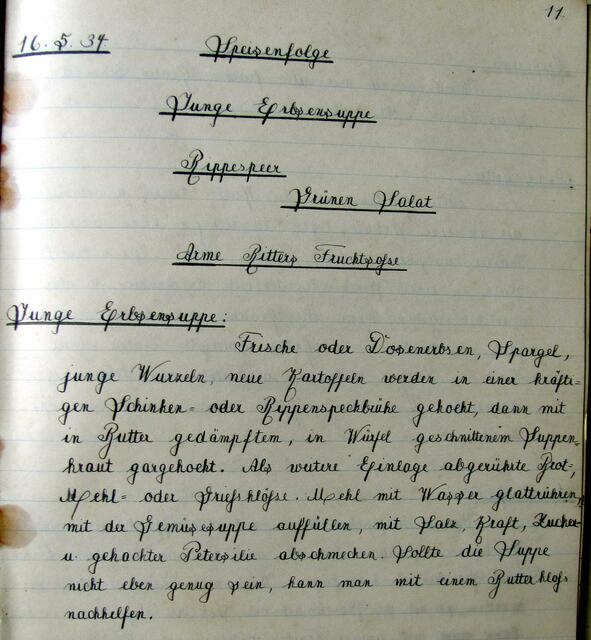 11.
16. 5. 34 Speisenfolge
Junge Erbsensuppe
Rippespeer
Grünen Salat
Arme Ritters Fruchtsoße
Junge Erbsensuppe:
Frische oder Dosenerbsen, Spargel,
junge Wurzeln, neue Kartoffeln werden in einer kräfti=
gen Schinken= oder Rippenspeckbrühe gekocht, dann mit
in Butter gedämpftem, in Würfel geschnittenem Suppen=
kraut gargekocht. Als weitere Einlage abgerührte Brot=,
Mehl= oder Griesklöße. Mehl mit Wasser glattrühren,
mit der Gemüsesuppe auffüllen, mit Salz, Kraft, Zucker
u. gehackter Petersilie abschmecken. Sollte die Suppe
nicht eben genug sein, kann man mit einem Butterkloß
nachhelfen.